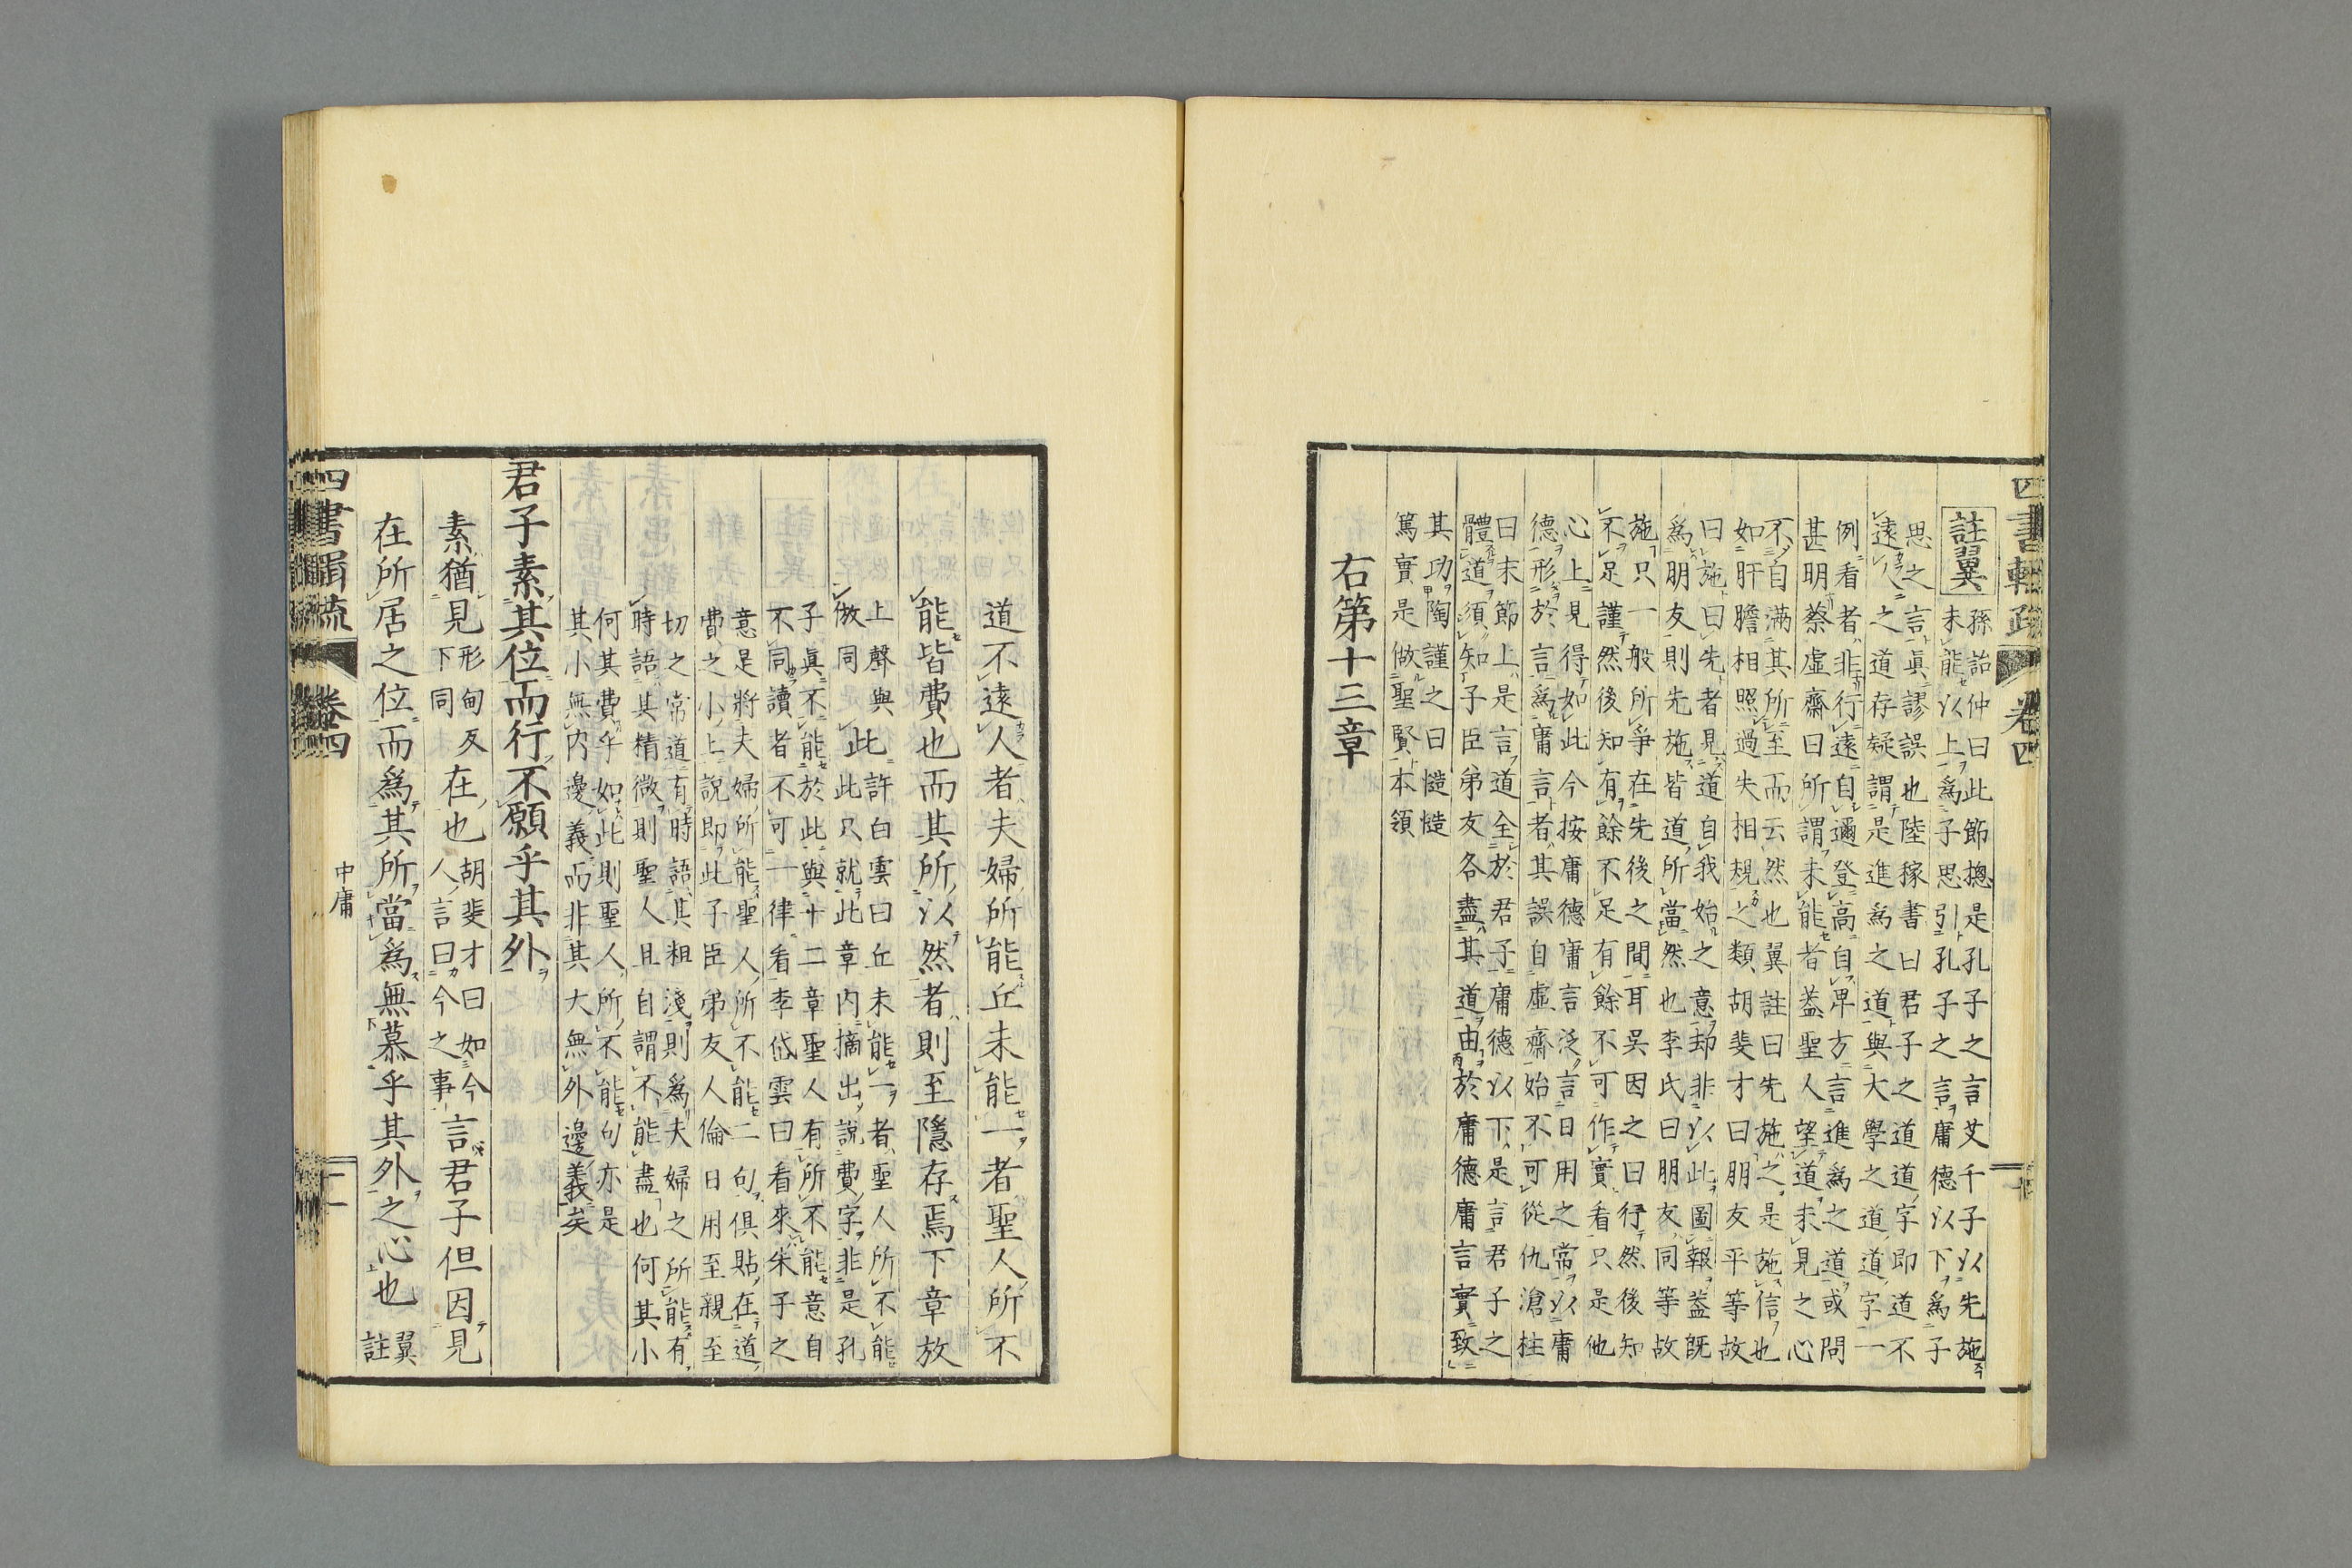 四書輯疏 卷四
註翼
孫詒仲曰此節揔是孔子之言艾千子以先施
未能以上爲子思引孔子之言庸德以下爲子
思之言眞謬誤也陸稼書曰君子之道道字即道不
遠人之道存疑謂是進爲之道與大學之道道字一
例看者非行遠自邇登高自卑方言進爲之道或問
甚明蔡虛齋曰所謂未能者蓋聖人望道未見之心
不自滿其所至而云然也翼註曰先施之是施信也
如肝膽相照過失相規之類胡斐才曰朋友平等故
曰施曰先者見道自我始之意却非以此圖報蓋既
爲朋友則先施皆道所當然也李氏曰朋友同等故
施只一般所爭在先後之間耳吳因之曰行然後知
不足謹然後知有餘不足有餘不可作實看只是他
心上見得如此今按庸德庸言泛言日用之常以庸
德形於言爲庸言者其誤自虛齋始不可從仇滄柱
曰末節上是言道全於君子庸德以下是言君子之
體道須知子臣弟友各盡其道由於庸德庸言實致
其功陶謹之曰慥慥
篤實是做聖賢本領
右第十三章
道不遠人者夫婦所能丘未能一者聖人所不
能皆費也而其所以然者則至隱存焉下章放
此
上聲與
倣同
許白雲曰丘未能一者聖人所不能
此只就此章内摘出說費字非是孔
子眞不能於此與十二章聖人有所不能意自
不同讀者不可一律看李岱雲曰看來朱子之
意是將夫婦所能聖人所不能二句俱貼在道
費之小上說即此子臣弟友人倫日用至親至
切之常道有時語其粗淺則爲夫婦之所能有
時語其精微則聖人且自謂不能盡也何其小
何其費乎如此則聖人所不能句亦是
其小無内邊義而非其大無外邊義矣
君子素其位而行不願乎其外
素猶見
形甸反
下同
在也
胡斐才曰如今
人言曰今之事
言君子但因見
在所居之位而爲其所當爲無慕乎其外之心也
翼
註
四書輯疏 卷四 中庸